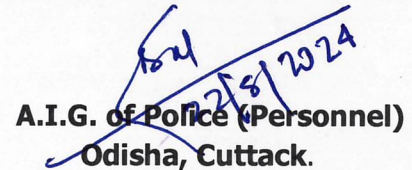 22/8/2024
A.I.G. of Police (Personnel)
Odisha, Cuttack.